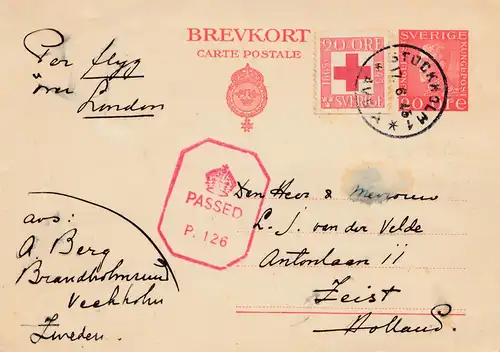 BREVKORT
CARTE POSTALE
Per flyg
över London
20 ÖRE
1865 1945
SVERIGE
SVERIGE
KUNGL. POST
ÖRE
STOCKHOLM 1
PASSED
P. 126
Den Heer & Mevrouw
L. J. van der Velde
Antonlaan 11
Zeist
Holland.
avs:
A. Berg
Zweden.